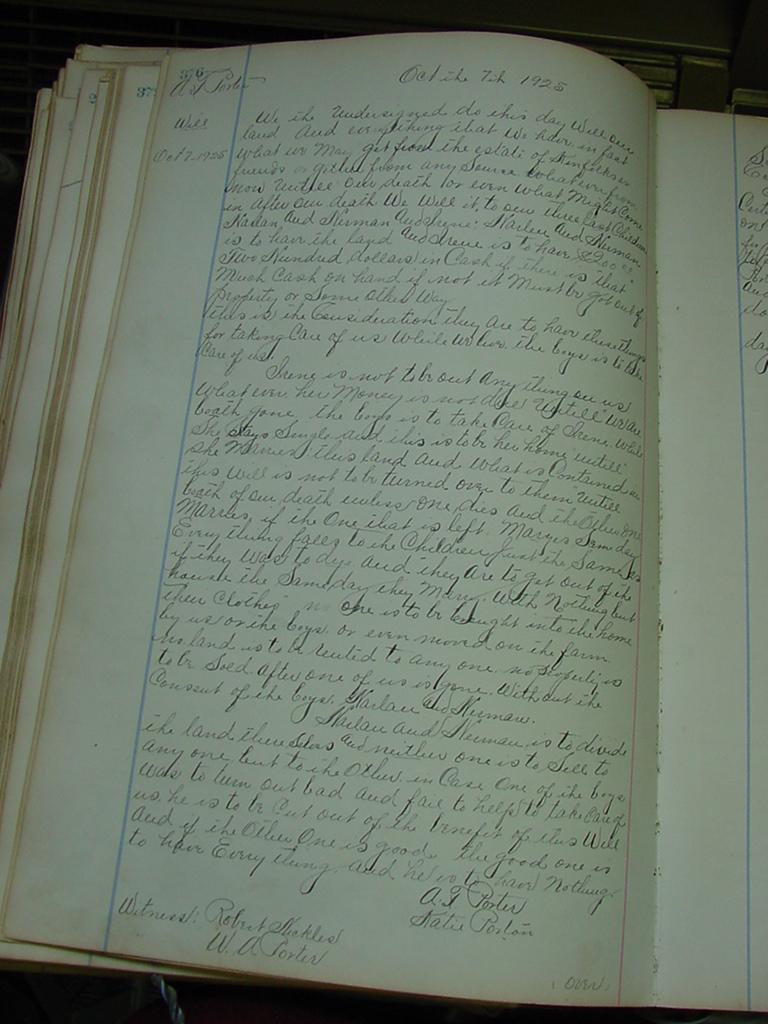 376
37
A. F. Porter
Will
Oct 7. 1925
Oct the 7th 1925
We the undersigned do this day Will our
land and everything that We have in fact
What we May get from the estate of Kinfolks or
friends or gother from any Source Whatever from
now untill our death or even What Might Come
in after our death We Will it to our three last Children
Harlan and Herman and Irene: Harlan and Herman
is to have the land and Irene is to have $200.00
Two Hundred dollars in Cash if there is that
Much Cash on hand if not it Must be got out of
property or Some other Way
this is the Consideration they are to have these things
for taking Care of us While we live. the boys is to take
Care of us.
Irene is not to be out any thing on us
What ever her Money is not due Untill We are
boath gone. the boys is to take Care of Irene. While
She Stays Single and this is to be her home untill
she Marries this land and What is Contained in
this Will is not to be turned over to them Untill
boath of our death unless one dies and the other one
Marries, if the One that is left Marrys Same day
Every thing falls to the Children Just the Same as
if they Was to dye and they are to get out of the
house the Same day they Marry. With Nothing but
their Clothes no one is to be brought into the home
by us or the boys. or even moved on the farm
no land is to be rented to any one. no property is
to be Sold after one of us is gone. Without the
Consent of the boys. Harlan and Herman.
Harlan and Herman is to divide
the land there Selvs and neither one is to Sell to
any one but to the Other. in Case One of the boys
Was to turn out bad and fail to help to take Care of
us. he is to be Cut out of the benefit of this Will
and if the Other One is good. the good one is
to have Every thing. and he is to have Nothing.
A. F. Porter
Katie Porton
Witness: Robert Nickles
W. A Porter
(over)